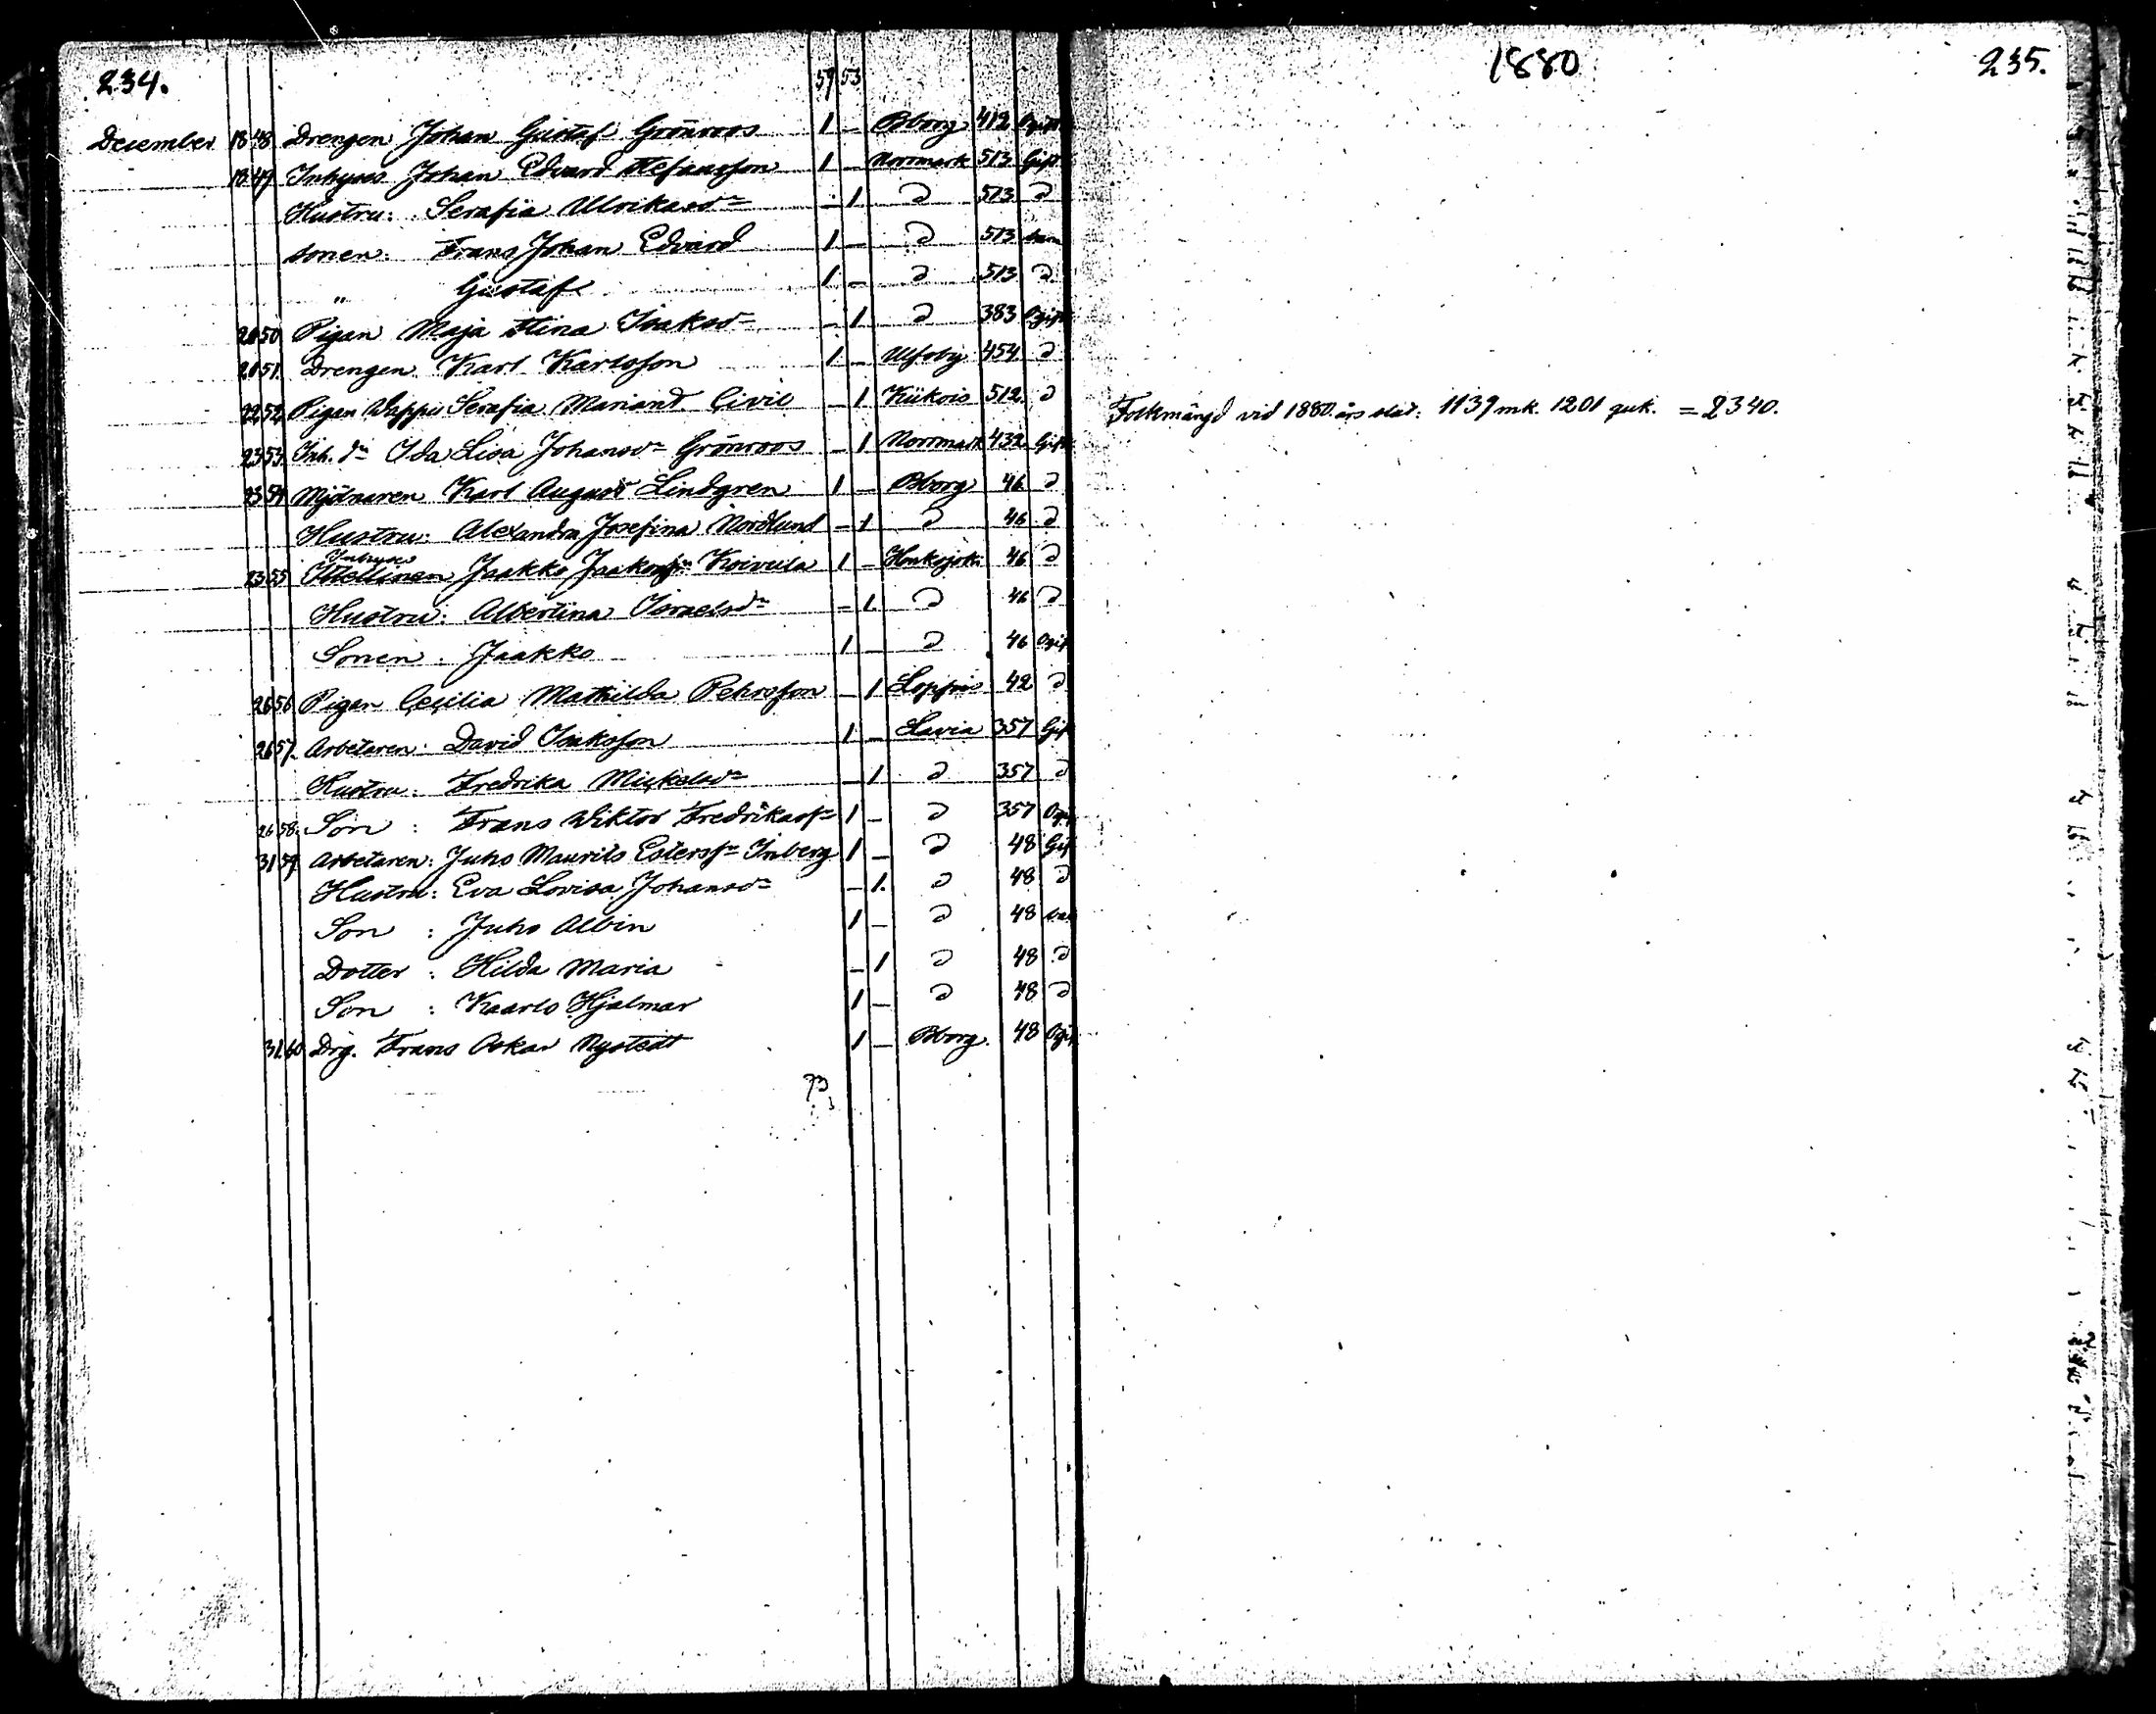 234.
59 53
December 18 48 Drengen Johan Gustaf Grönroos 1 - Bborg 412 Ogift
18 49 Inhyses Johan Edvard Stefansson 1 - Norrmark 513 Gift
Hustru: Serafia Ulrikasdr - 1 d 513 d
sonen: Frans Johan Edvard 1 - d 513 barn
" Gustaf 1 - d 513 d
20 50 Pigan Maja Stina Isaksdr - 1 d 383 Ogift
20 51 Drengen Karl Karlsson 1 - Ulfsby 454 d
22 52 Pigan Serafia Civil - 1 Kiikois 512 d
23 53 Inh. dr Ida Lisa Johansdr Grönroos - 1 Norrmark 432 Gift
23 54 Mjölnaren Karl August Lindgren 1 - Bborg 46 d
Hustru: Alexandra Josefina Nordlund - 1 d 46 d
Inhyses
23 55 Jaakko Koivula 1 - Honkojoki 46 d
Hustru: Albertina Israelsdr - 1 d 46 d
Sonen: Jaakko 1 - d 46 Ogift
26 56 Pigan Cecilia Mathilda Pehrsson - 1 Loppis 42 d
26 57 Arbetaren: David Isaksson 1 - Lavia 357 Gift
Hustru: Fredrika Mickelsdr - 1 d 357 d
26 58 Son: Frans Wiktor Fredrikass. 1 - d 357 Ogift
31 59 Arbetaren: Juho Maurits Inberg 1 - d 48 Gift
Hustru: Eva Lovisa Johansdr - 1 d 48 d
Son: Juho Albin 1 - d 48 barn
Dotter: Hilda Maria - 1 d 48 d
Son: Kaarlo Hjalmar 1 - d 48 d
31 60 Drg. Frans Oskar Nystedt 1 - Bborg 48 Ogift
73
1880
235.
Folkmängd vid 1880 års slut: 1139 mk. 1201 quk. = 2340.